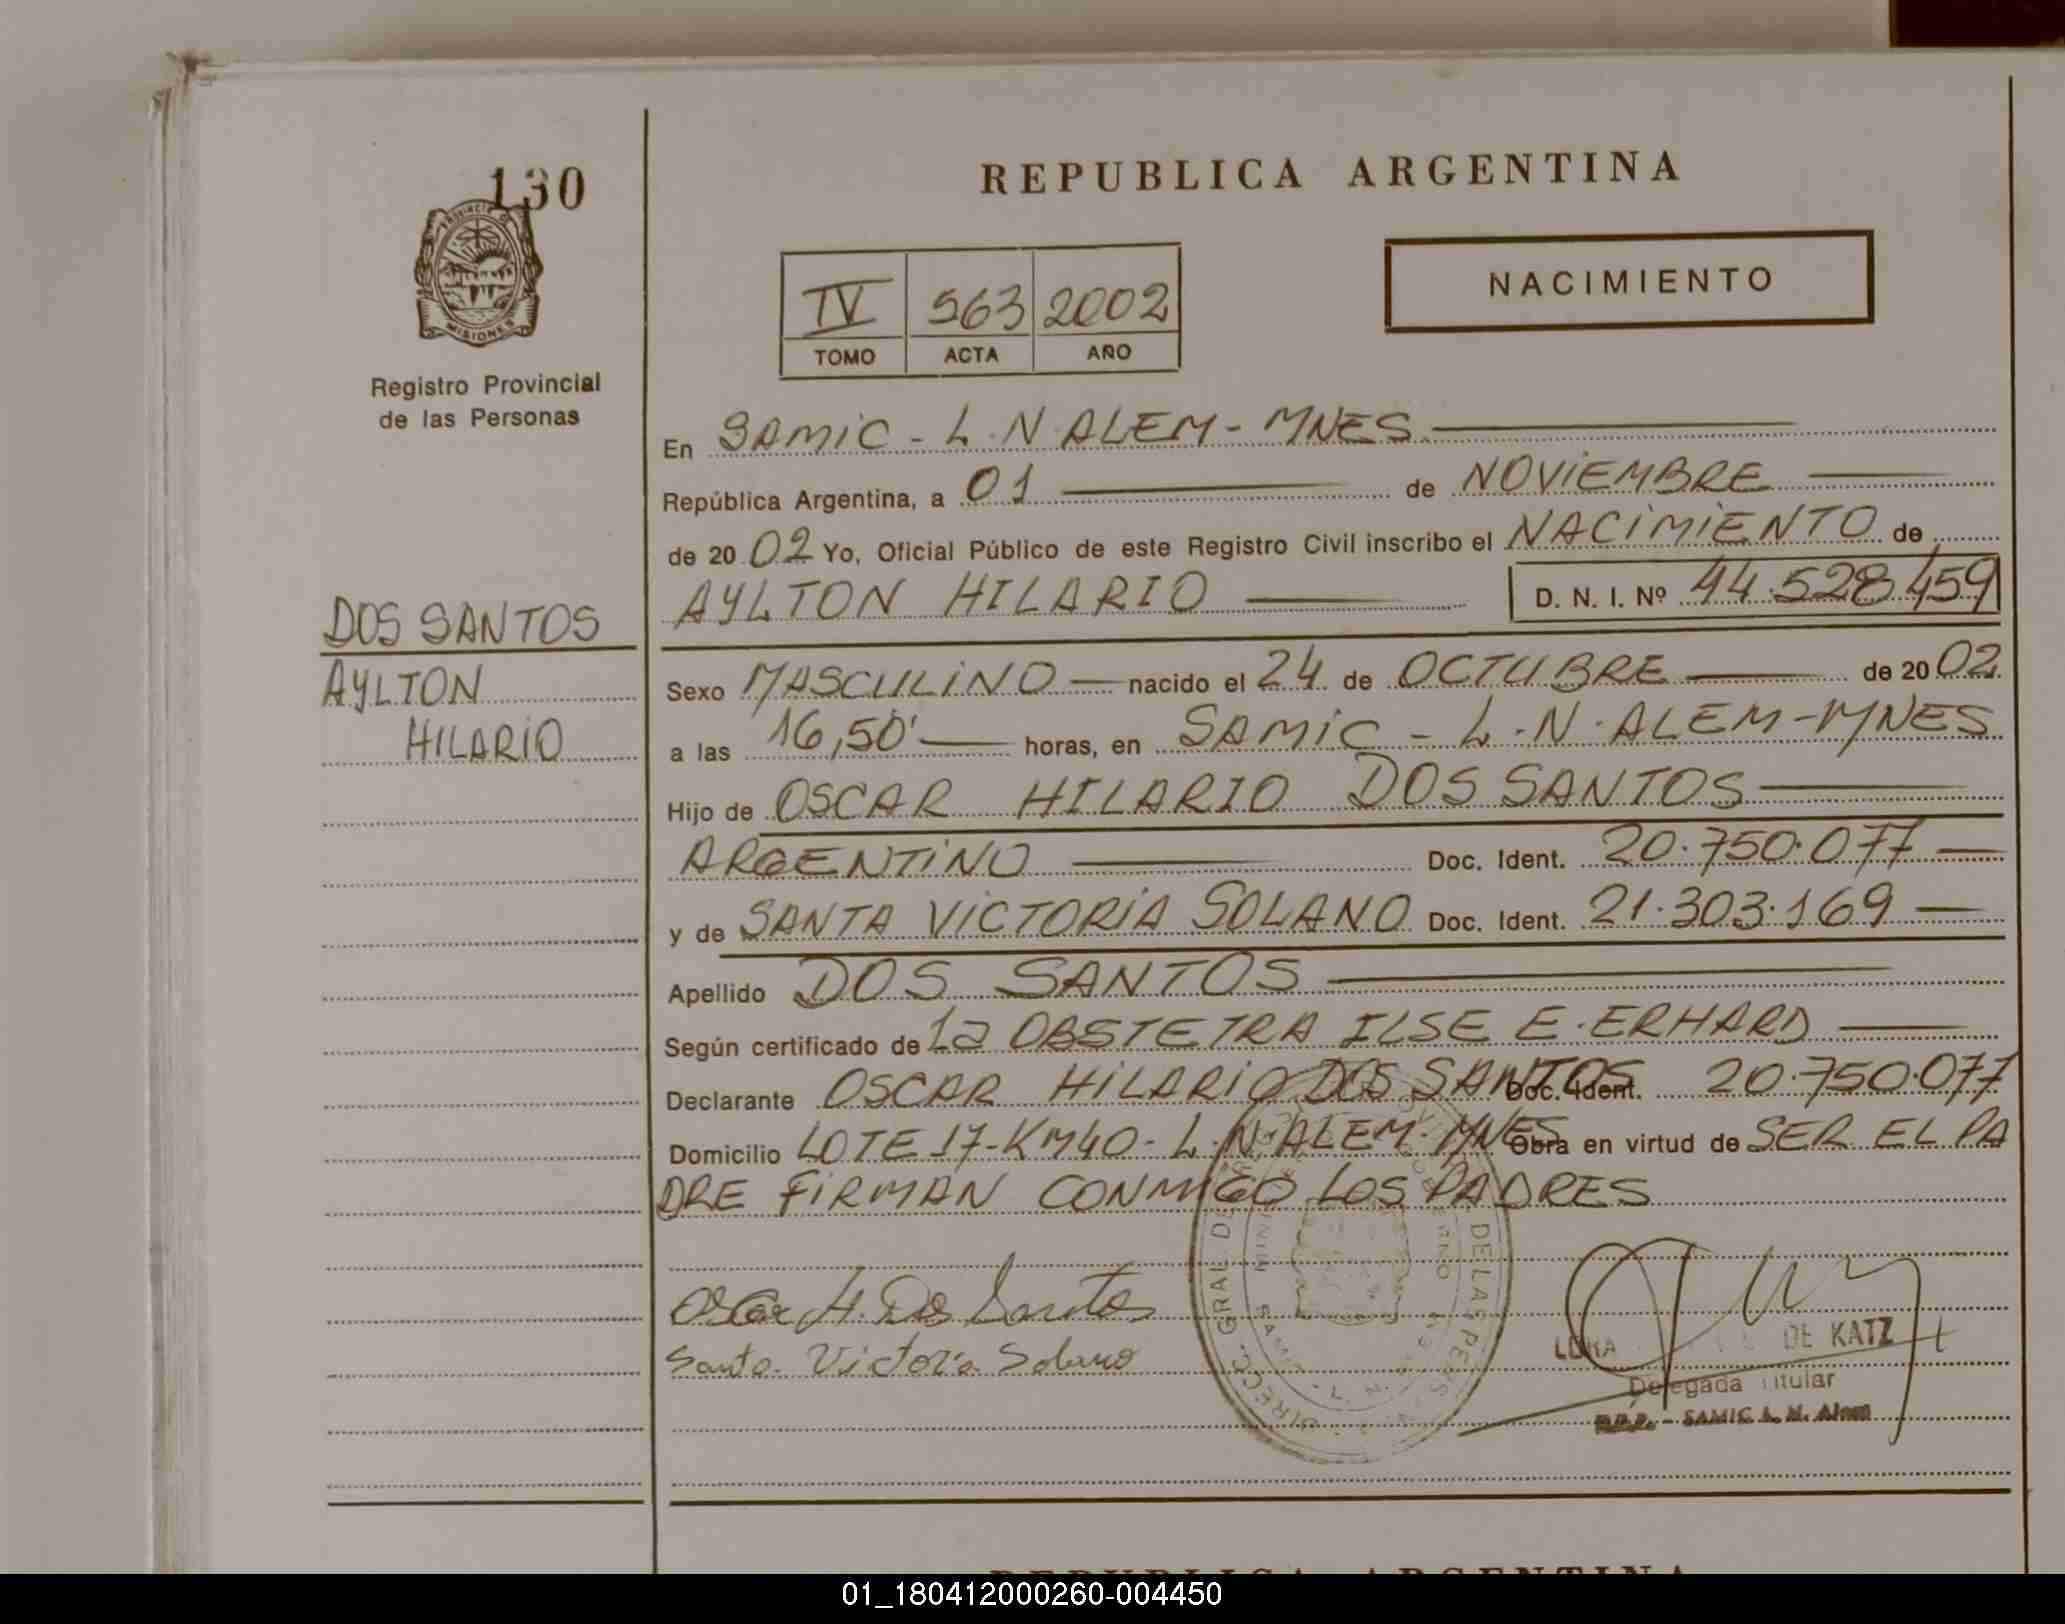 130
PROVINCIA DE
MISIONES
Registro Provincial
de las Personas
DOS SANTOS
AYLTON
HILARIO
REPUBLICA ARGENTINA
NACIMIENTO
IV 563 2002
TOMO ACTA AÑO
En SAMIC - L.N.ALEM - MNES
República Argentina, a 01 de NOVIEMBRE
de 20 02 Yo, Oficial Público de este Registro Civil inscribo el NACIMIENTO de
AYLTON HILARIO D. N. I. Nº 44.528.459
Sexo MASCULINO nacido el 24 de OCTUBRE de 20 02
a las 16,50' horas, en SAMIC - L.N.ALEM-MNES
Hijo de OSCAR HILARIO DOS SANTOS
ARGENTINO Doc. Ident. 20.750.077
y de SANTA VICTORIA SOLANO Doc. Ident. 21.303.169
Apellido DOS SANTOS
Según certificado de La OBSTETRA ILSE E. ERHARD
Declarante OSCAR HILARIO DOS SANTOS Doc. Ident. 20.750.077
Domicilio LOTE 17-KM40- L.N.ALEM-MNES Obra en virtud de SER EL PA
DRE FIRMAN CONMIGO LOS PADRES
Oscar H. Dos Santos
Santa Victoria Solano
DE KATZ
Delegada Titular
R.P.P. - SAMIC L. N. Alem
REPUBLICA ARGENTINA
01_180412000260-004450